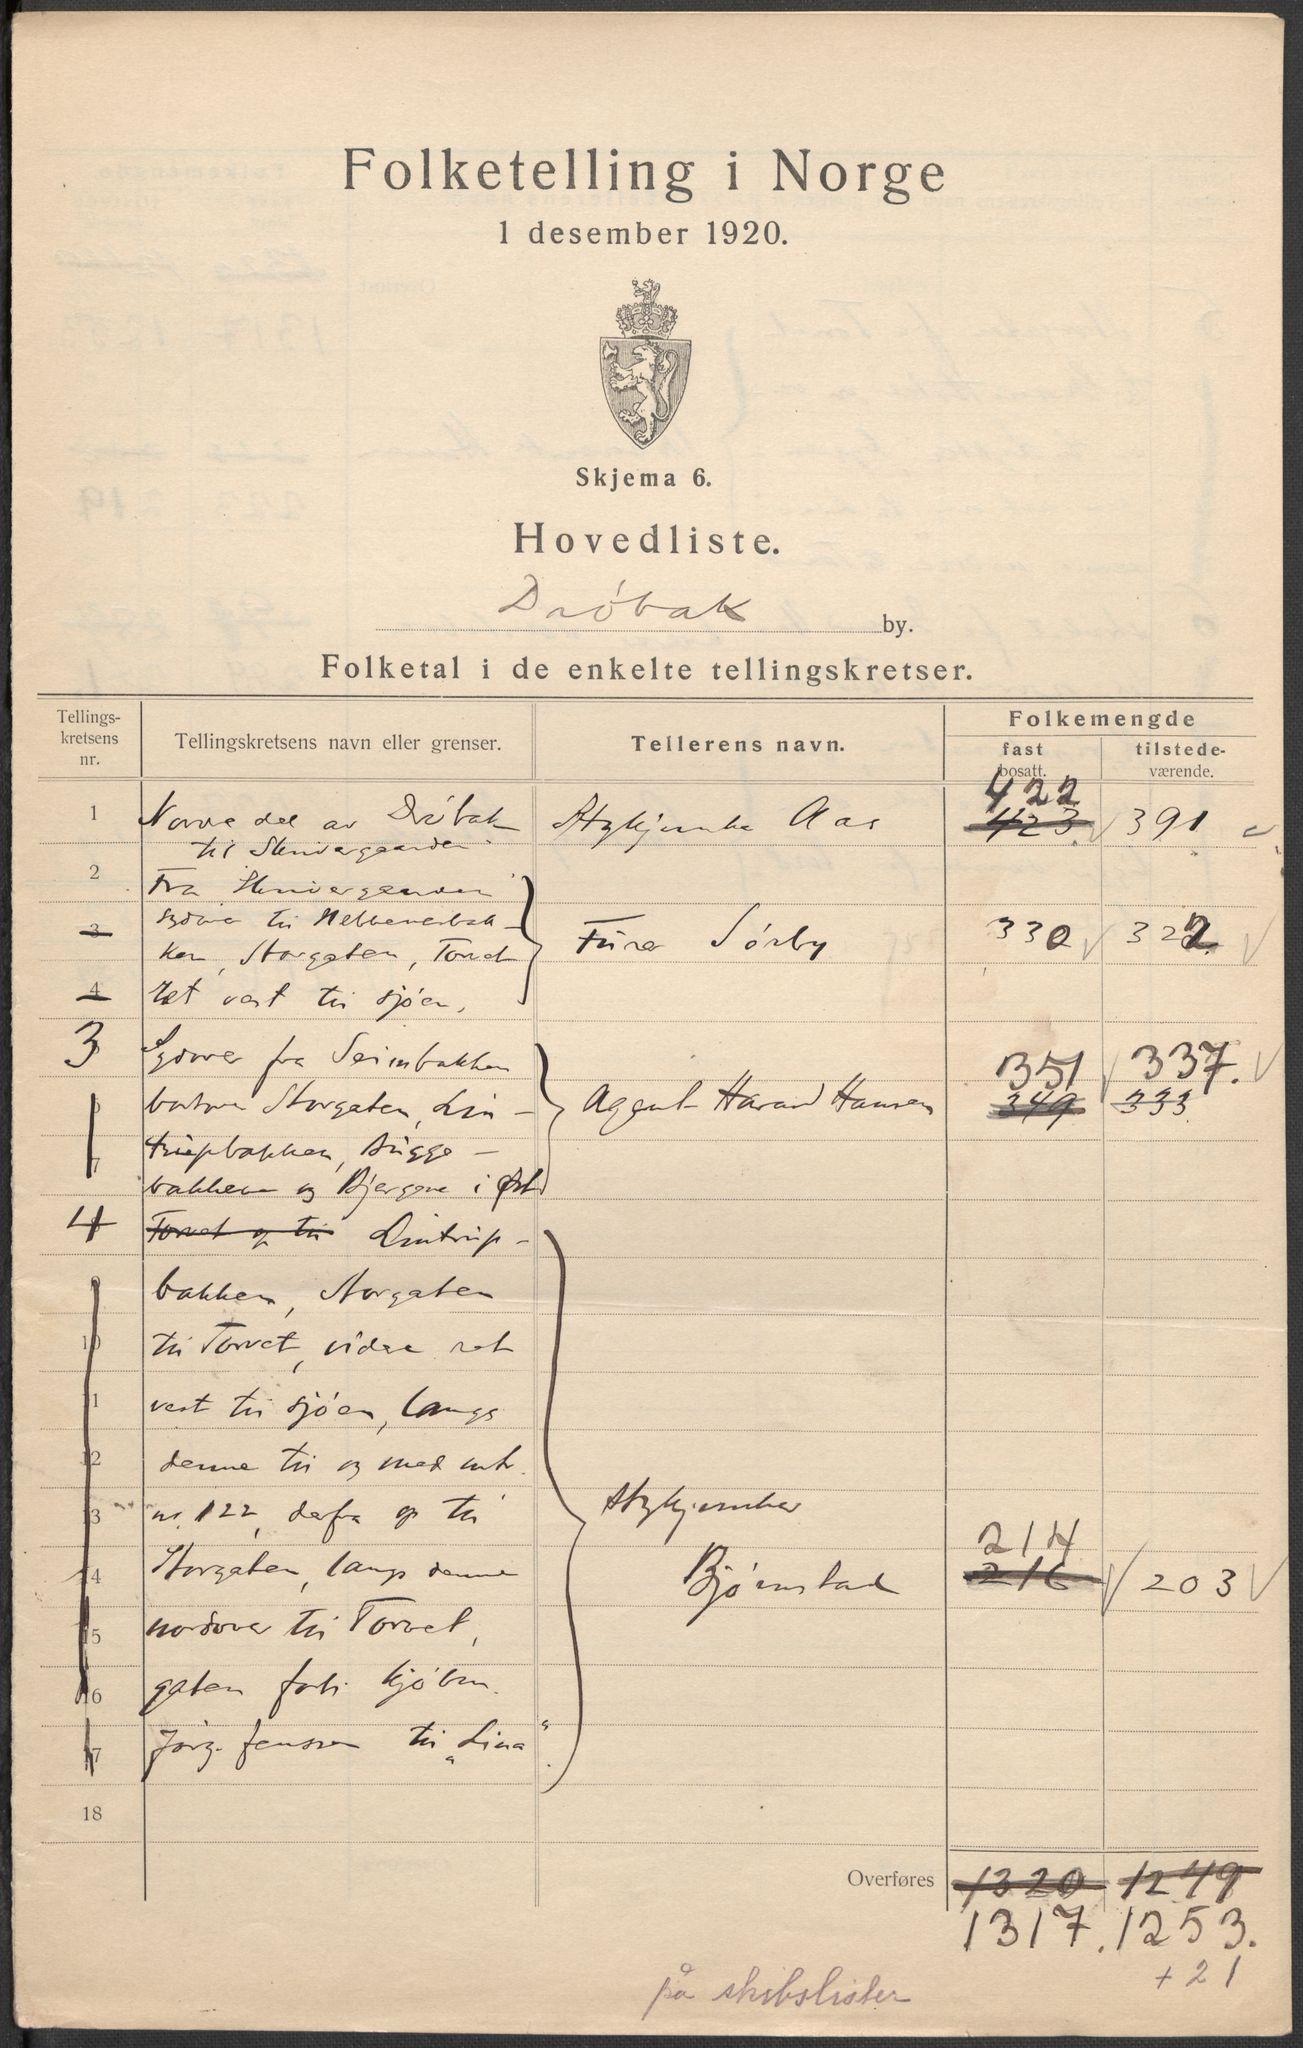 Folketelling i Norge
1 desember 1920.
Skjema 6.
Hovedliste.
Drøbak by.
Folketal i de enkelte tellingskretser.
Tellings-
kretsens
nr.
Tellingskretsens navn eller grenser.
Tellerens navn.
Folkemengde
fast
bosatt.
tilstede-
værende.
422
1 Nordre del av Drøbak Styrkjunker Aas 423 391
til Skrivergaarden
2 Fra Skrivergaarden
3 sydover til
ken, Storgaten, Torvet Furer Sørby 330 322
4 ret vest til sjøen.
3 Sydover fra 351 337.
bortover Storgaten, Lin- Agent Harald Hansen 349 333
7 trupbakken, Bugge-
bakkene og Bjergene i Øst
4 Torvet op til Lintrup-
bakken, Storgaten
10 til Torvet, videre ret
11 vest til sjøen, langs
12 denne til og med mtr.
13 nr. 122, derfra op til Stykjunker
214
14 Storgaten, langs denne Bjørnstad 216 203
15 nordover til Torvet,
16 gaten forbi kjøbm.
17 Jørg. Jensen til "Lina"
18
Overføres 1320 1249
1317. 1253.
+ 21
på skibslister